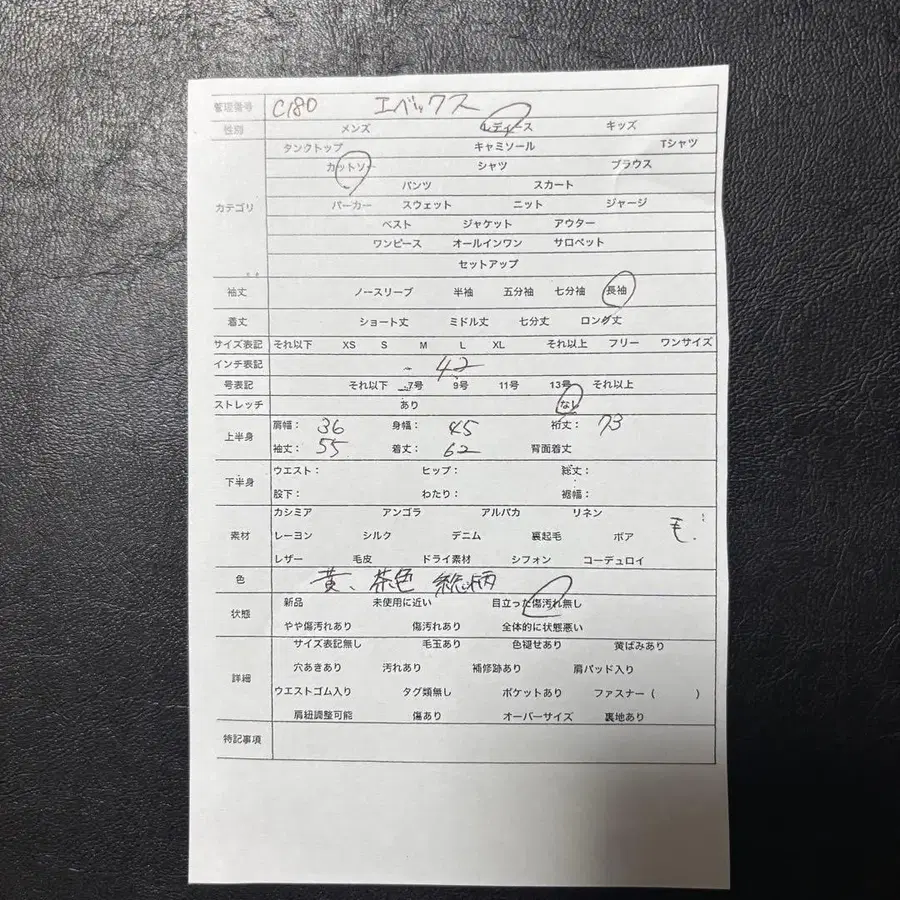 管理番号 C180 エベックス
性別 メンズ レディース キッズ
タンクトップ キャミソール Tシャツ
カットソー シャツ ブラウス
パンツ スカート
カテゴリ パーカー スウェット ニット ジャージ
ベスト ジャケット アウター
ワンピース オールインワン サロペット
セットアップ
袖丈 ノースリーブ 半袖 五分袖 七分袖 長袖
着丈 ショート丈 ミドル丈 七分丈 ロング丈
サイズ表記 それ以下 XS S M L XL それ以上 フリー ワンサイズ
インチ表記 42
号表記 それ以下 7号 9号 11号 13号 それ以上
ストレッチ あり なし
上半身 肩幅: 36 身幅: 45 裄丈: 73
袖丈: 55 着丈: 62 背面着丈
下半身 ウエスト: ヒップ: 総丈:
股下: わたり: 裾幅:
カシミア アンゴラ アルパカ リネン
素材 レーヨン シルク デニム 裏起毛 ボア 毛
レザー 毛皮 ドライ素材 シフォン コーデュロイ
色 黄、茶色 総柄
状態 新品 未使用に近い 目立った傷汚れ無し
やや傷汚れあり 傷汚れあり 全体的に状態悪い
サイズ表記無し 毛玉あり 色褪せあり 黄ばみあり
詳細 穴あきあり 汚れあり 補修跡あり 肩パッド入り
ウエストゴム入り タグ類無し ポケットあり ファスナー ( )
肩紐調整可能 傷あり オーバーサイズ 裏地あり
特記事項